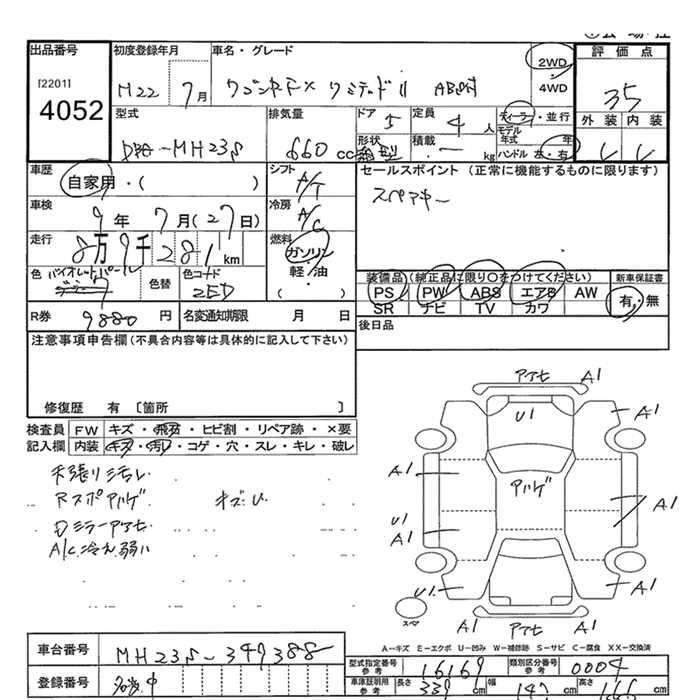 出品番号
[2201]
4052
初度登録年月
M22 7月
車名・グレード
ワゴンRFX リミテッドⅡ ABS付
2WD
4WD
評価点
35
外装 内装
型式
DBA-MH23S
排気量
660 cc
ドア
5
形状
定員
4 人
積載
― kg
ディーラー・並行
モデル
年式 年
ハンドル 左・右
車歴
自家用・( )
シフト
A/T
セールスポイント (正常に機能するものに限ります)
スペアキー
車検
9年 7月(27日)
冷房
A/C
走行
8万9千281km
燃料
ガソリン
軽・油
( )
色 バイオレットパール
色替
色コード
ZED
装備品(純正品に限り○をつけてください)
PS PW ABS エアB AW
SR ナビ TV カワ
新車保証書
有・無
R券 9880円
名変通知期限 月 日
後日品
注意事項申告欄(不具合内容等は具体的に記入して下さい)
修復歴 有 〔箇所 〕
検査員
記入欄
FW キズ・飛石・ヒビ割・リペア跡・×要
内装 キズ・汚レ・コゲ・穴・スレ・キレ・破レ
天張り汚レ
Rスポ アハゲ キズ・U
Dミラーアセ
A/C冷え弱い
アセ A1
U1
A1
A1
アハゲ
A1
U1
A1
U1
A1
アセ A1
スペア
A-キズ E-エクボ U-凹み W-補修跡 S-サビ C-腐食 XX-交換済
車台番号
MH23S-349388
型式指定番号
参考
16169
類別区分番号
参考
0004
登録番号
車庫証明用
参考
長さ 339cm 幅 147cm 高さ 166cm